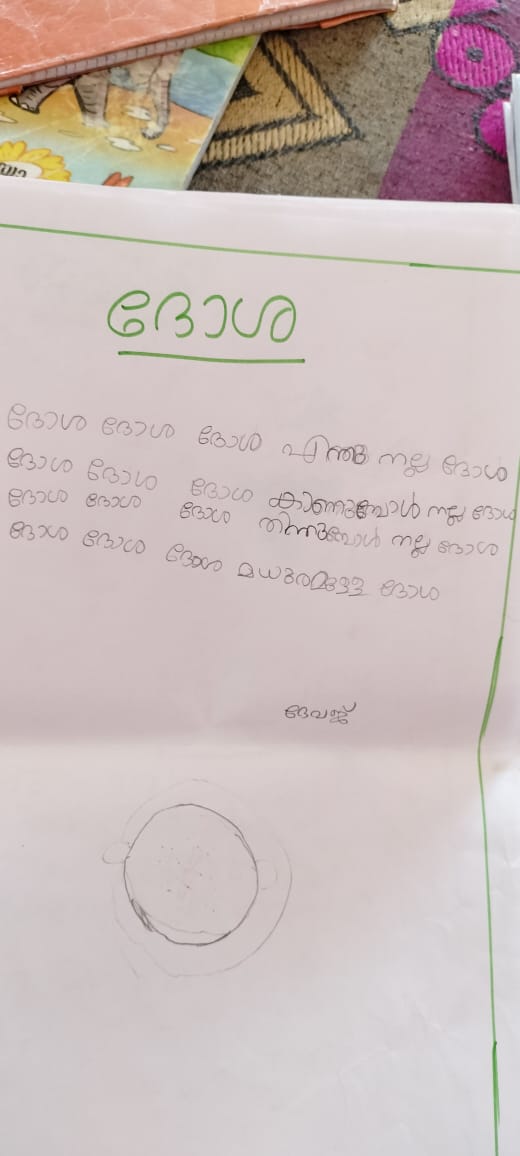 ദോശ
ദോശ ദോശ ദോശ എന്തു നല്ല ദോശ
ദോശ ദോശ ദോശ കാണുമ്പോൾ നല്ല ദോശ
ദോശ ദോശ ദോശ തിന്നുമ്പോൾ നല്ല ദോശ
ദോശ ദോശ ദോശ മധുരമുള്ള ദോശ
ദേവജ്